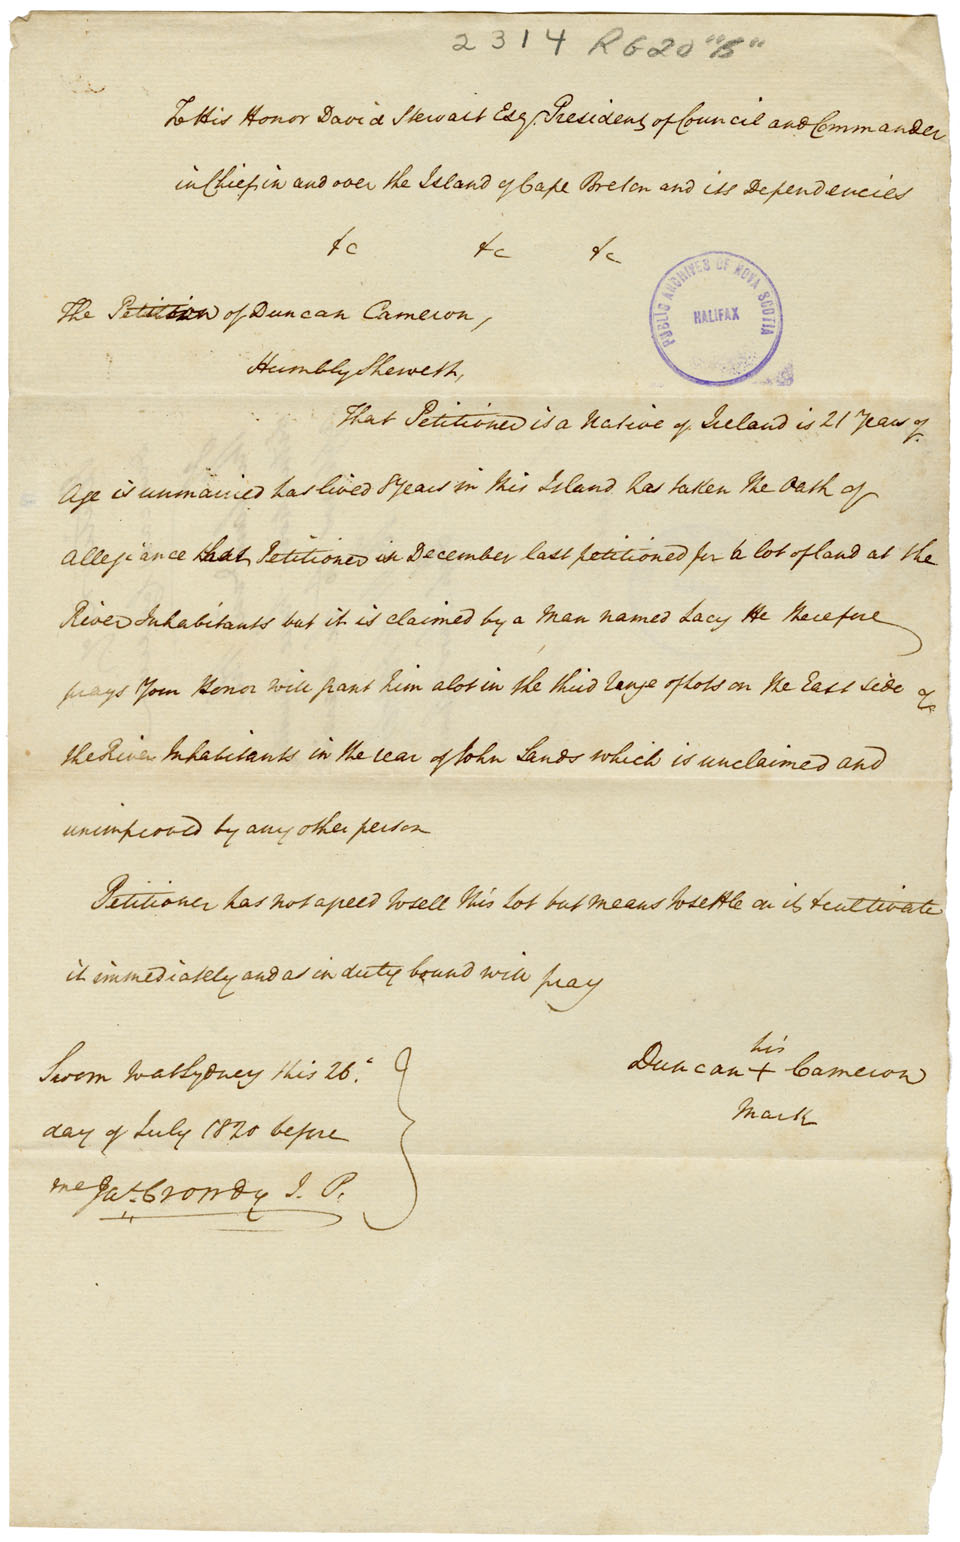 2314 RG20 "B"
To His Honor David Stewart Esqr. President of Council and Commander
in Chief in and over the Island of Cape Breton and its Dependencies
&c &c &c
PUBLIC ARCHIVES OF NOVA SCOTIA
HALIFAX
The Petition of Duncan Cameron,
Humbly Sheweth,
That Petitioner is a Native of Ireland is 21 Years of
Age is unmarried has lived 8 years in this Island has taken the Oath of
Allegiance that Petitioner in December last petitioned for a lot of land at the
River Inhabitants but it is claimed by a Man named Lacy He therefore
prays Your Honor will grant him a lot in the third range of lots on the East side of
the River Inhabitants in the rear of John Lands which is unclaimed and
unimproved by any other person
Petitioner has not agreed to sell this Lot but means to settle on it & cultivate
it immediately and as in duty bound will pray
his
Duncan + Cameron
Mark
Sworn to at Sydney this 26.
day of July 1820 before
me Jas. Crowdy J. P.